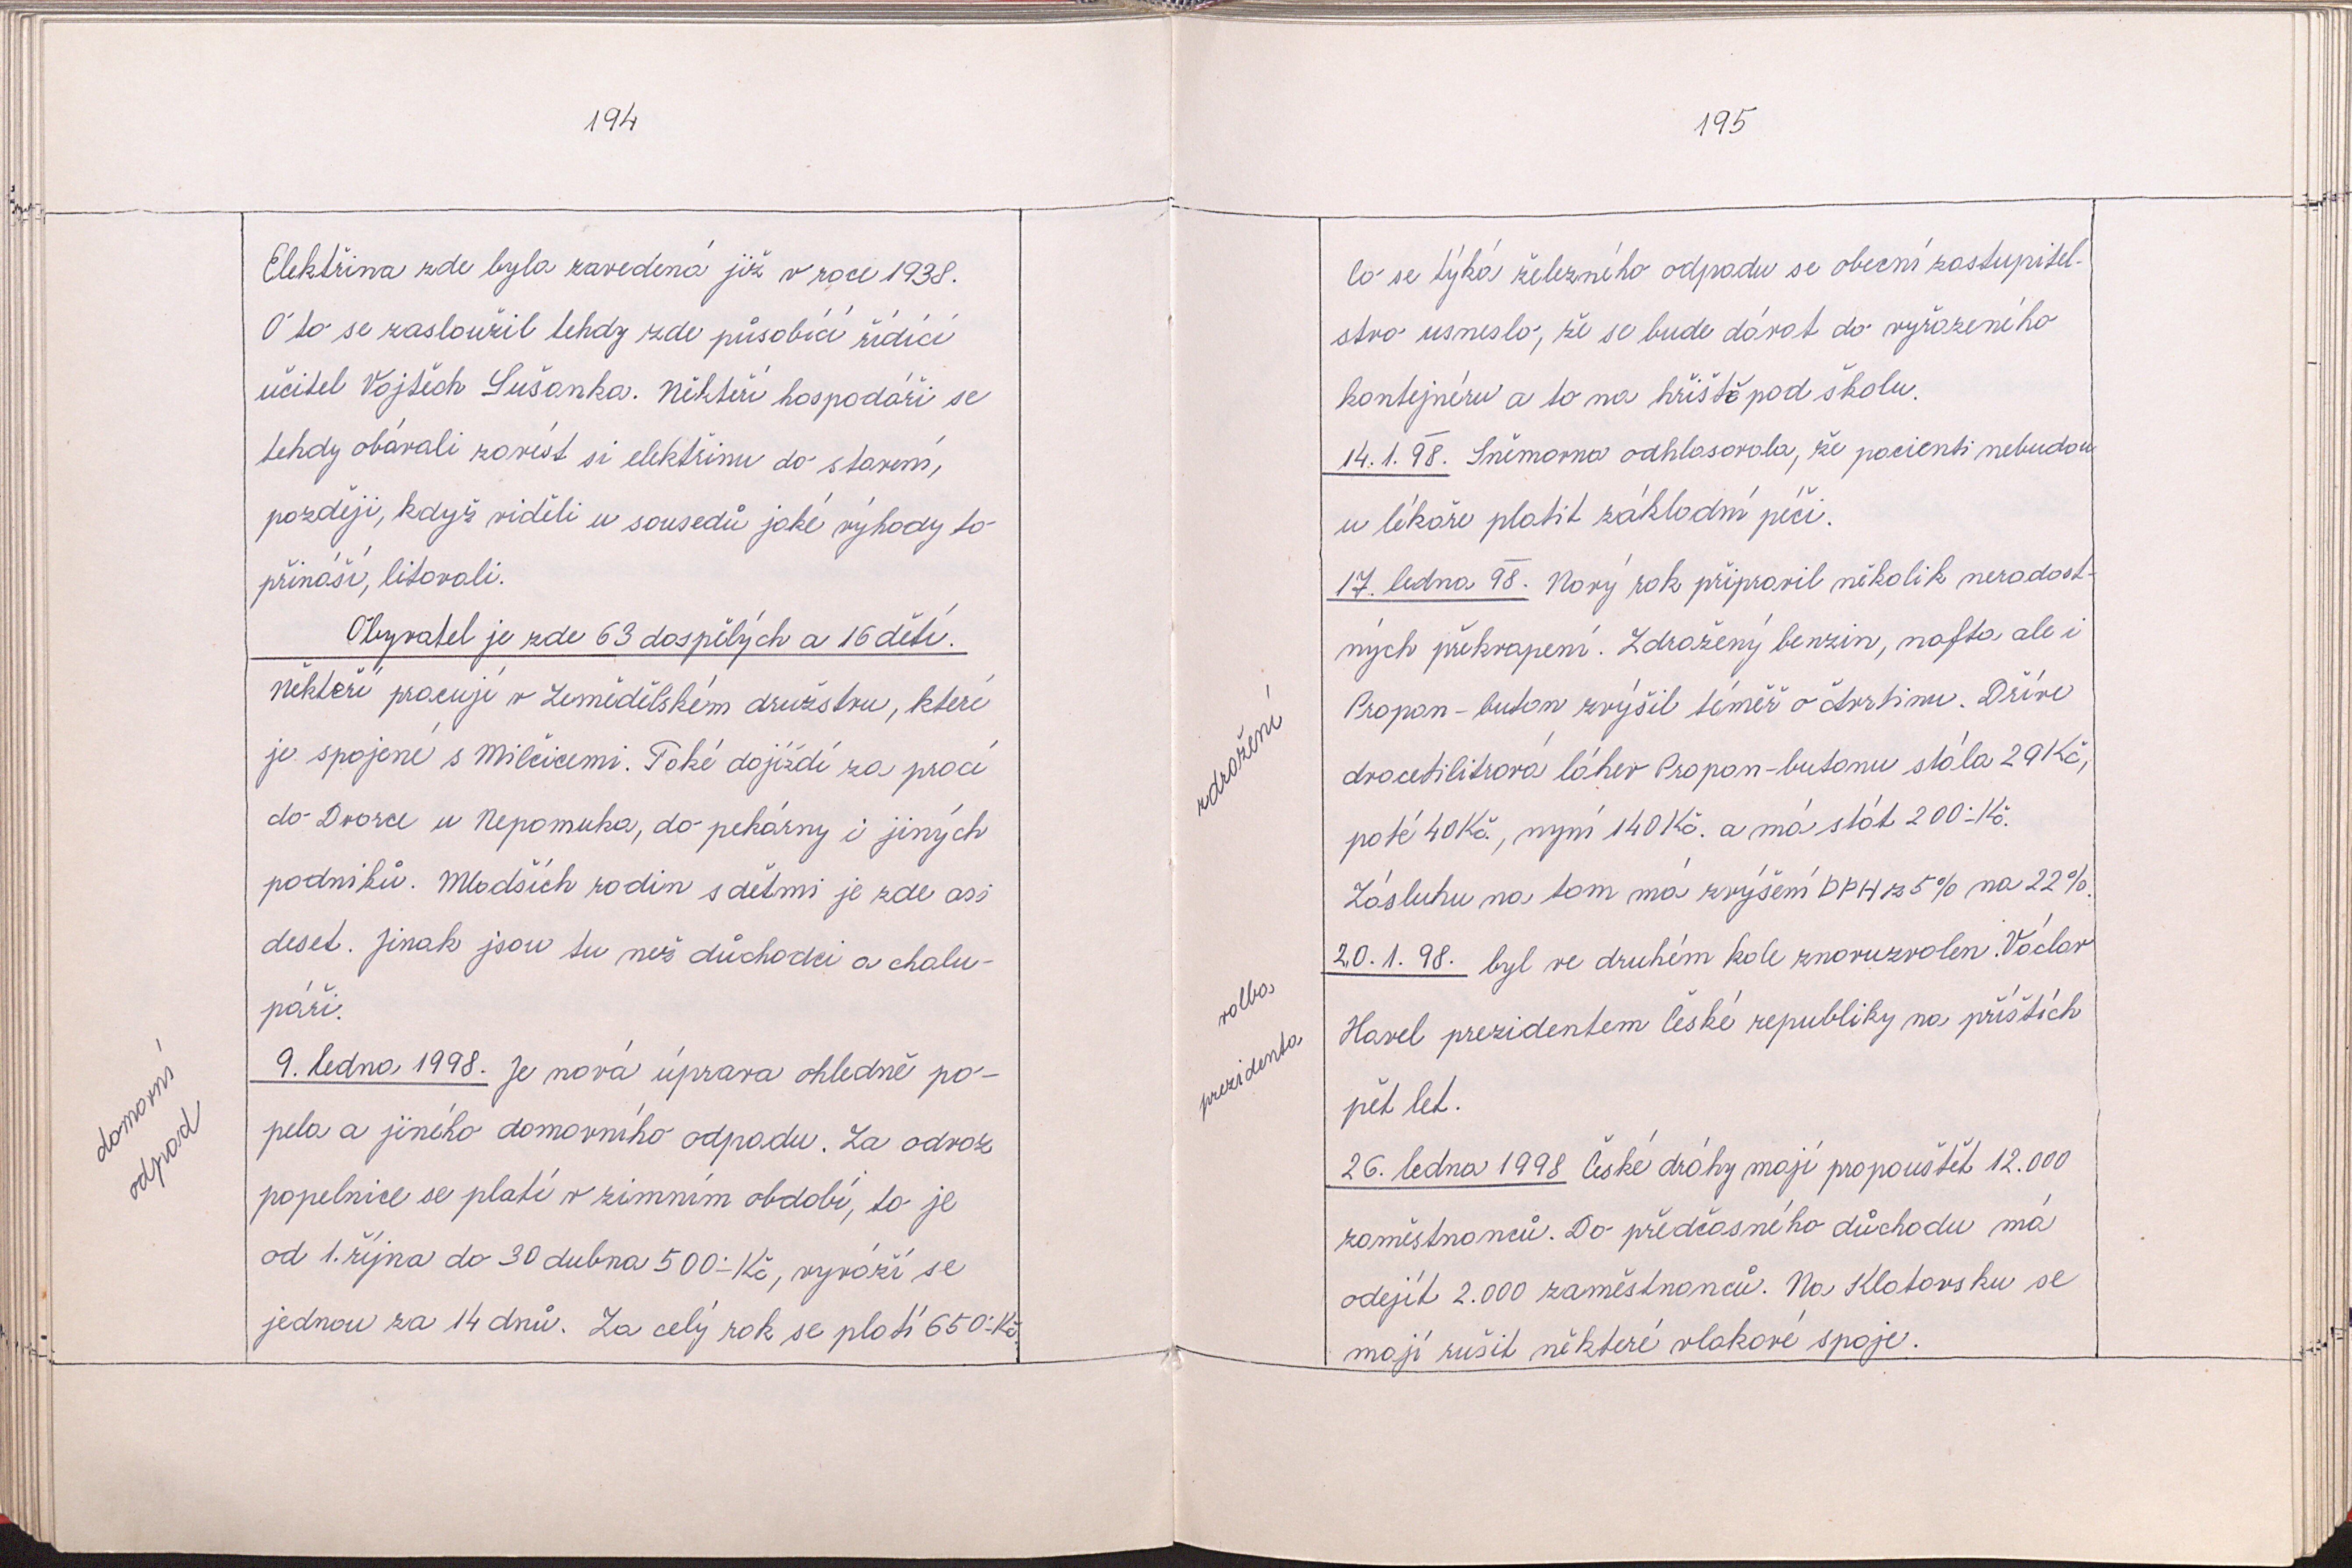 194
Elektřina zde byla zavedená již v roce 1938.
O to se zasloužil tehdy zde působící řídící
učitel Vojtěch Sušanka. Někteří hospodáři se
tehdy obávali zavést si elektřinu do stavení,
později, když viděli u sousedů jaké výhody to
přináší, litovali.
Obyvatel je zde 63 dospělých a 16 dětí.
Někteří pracují v Zemědělském družstvu, které
je spojené s Milčicemi. Také dojíždí za prací
do Dvorce u Nepomuka, do pekárny i jiných
podniků. Mladších rodin s dětmi je zde asi
deset. Jinak jsou tu než důchodci a chalu-
páři.
domovní
odpad
9. ledna 1998. Je nová úprava ohledně po-
pela a jiného domovního odpadu. Za odvoz
popelnice se platí v zimním období, to je
od 1. října do 30 dubna 500.- Kč, vyváží se
jednou za 14 dnů. Za celý rok se platí 650.- Kč.
195
Co se týká železného odpadu se obecní zastupitel-
stvo usneslo, že se bude dávat do vyřazeného
kontejnéru a to na hřiště pod školu.
14. 1. 98. Sněmovna odhlasovala, že pacienti nebudou
u lékaře platit základní péči.
17. ledna 98. Nový rok připravil několik neradost-
ných překvapení. Zdražený benzin, nafta ale i
zdražení
Propan-butan zvýšil téměř o čtvrtinu. Dříve
dvacetilitrová láhev Propan-butanu stála 29 Kč,
poté 40 Kč., nyní 140 Kč. a má stát 200.- Kč.
Zásluhu na tom má zvýšení DPH z 5% na 22%.
volba
prezidenta
20. 1. 98. byl ve druhém kole znovuzvolen Václav
Havel prezidentem České republiky na příštích
pět let.
26. ledna 1998 České dráhy mají propouštět 12.000
zaměstnanců. Do předčasného důchodu má
odejít 2.000 zaměstnanců. Na Klatovsku se
mají rušit některé vlakové spoje.